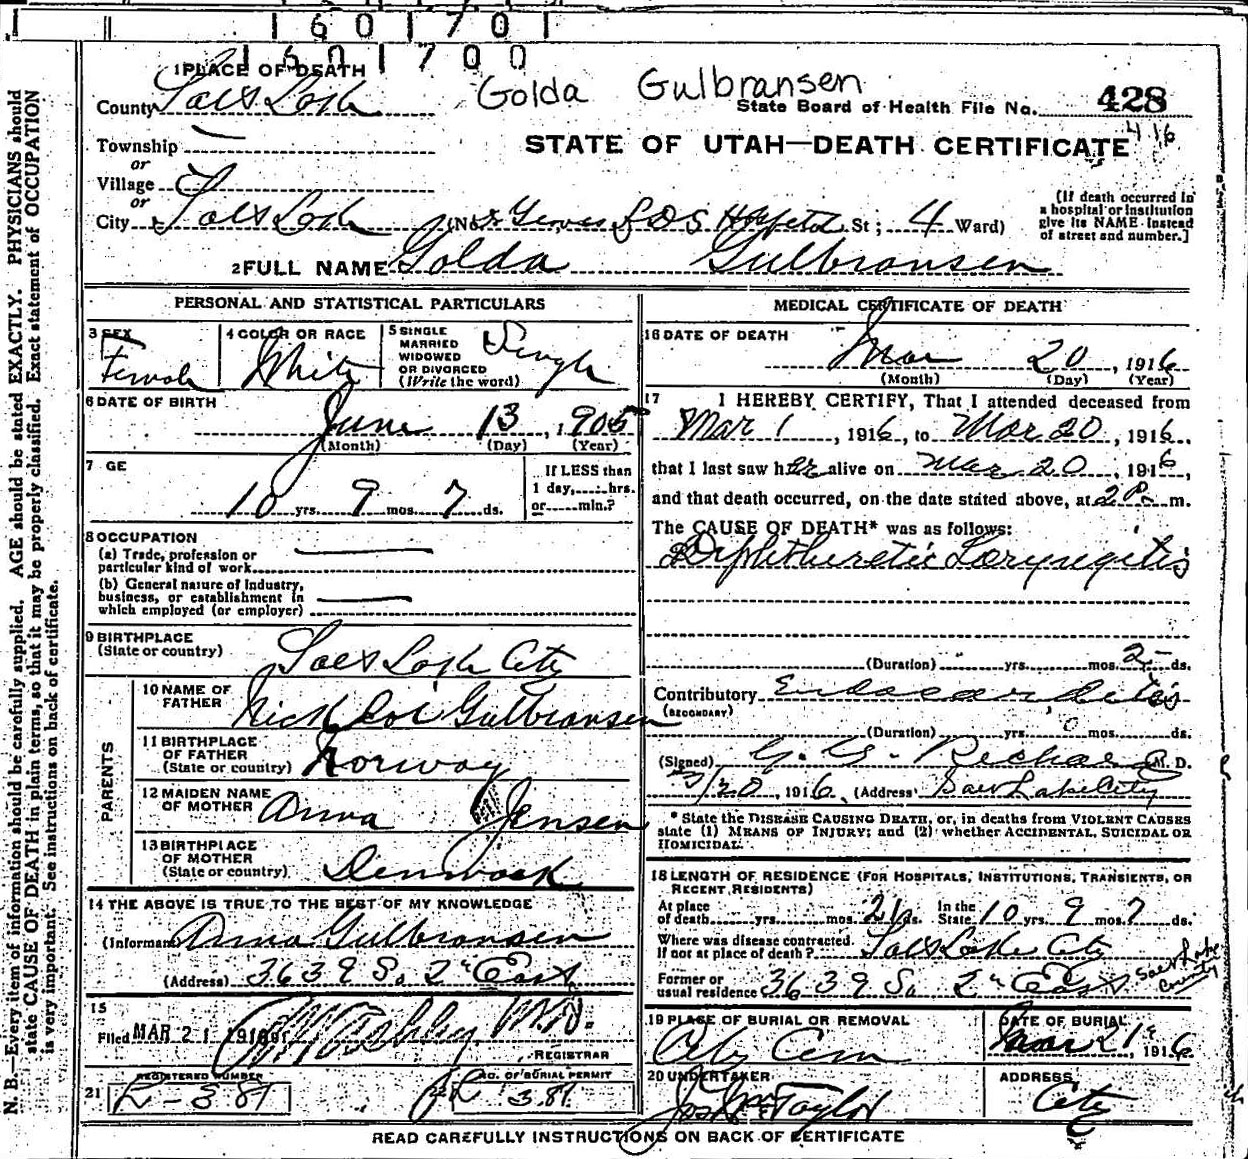 1 6 0 1 7 0 1
1 6 0 1 7 0 0
1 PLACE OF DEATH
Golda Gulbransen
County Salt Lake
State Board of Health File No. 428
416
Township
STATE OF UTAH—DEATH CERTIFICATE
or
Village
or
City Salt Lake (No. Groves L D S Hospital St; 4 Ward)
[If death occurred in a hospital or institution give its NAME instead of street and number.]
2 FULL NAME Golda Gulbransen
PERSONAL AND STATISTICAL PARTICULARS
3 SEX Female
4 COLOR OR RACE White
5 SINGLE MARRIED WIDOWED OR DIVORCED (Write the word) Single
6 DATE OF BIRTH
June 13, 1905
(Month) (Day) (Year)
7 GE
10 yrs. 9 mos. 7 ds.
If LESS than 1 day, hrs. or min.?
8 OCCUPATION
(a) Trade, profession or particular kind of work
(b) General nature of industry, business, or establishment in which employed (or employer)
9 BIRTHPLACE (State or country) Salt Lake City
PARENTS
10 NAME OF FATHER Nickoloi Gulbransen
11 BIRTHPLACE OF FATHER (State or country) Norway
12 MAIDEN NAME OF MOTHER Anna Jensen
13 BIRTHPLACE OF MOTHER (State or country) Denmark
14 THE ABOVE IS TRUE TO THE BEST OF MY KNOWLEDGE
(Informant) Anna Gulbransen
(Address) 3639 So 2" East
15
Filed MAR 21 1916 M.D.
REGISTRAR
21 REGISTERED NUMBER
NO. OF BURIAL PERMIT
MEDICAL CERTIFICATE OF DEATH
16 DATE OF DEATH
Mar 20, 1916
(Month) (Day) (Year)
17 I HEREBY CERTIFY, That I attended deceased from
Mar 1, 1916, to Mar 20, 1916,
that I last saw her alive on Mar 20, 1916,
and that death occurred, on the date stated above, at 2 P. m.
The CAUSE OF DEATH* was as follows:
Diphtheretic Laryngitis
(Duration) yrs. mos. 2 ds.
Contributory Endocarditis
(SECONDARY)
(Duration) yrs. mos. ds.
(Signed) G. G. Richards M. D.
3/20, 1916 (Address) Salt Lake City
* State the DISEASE CAUSING DEATH, or, in deaths from VIOLENT CAUSES
state (1) MEANS OF INJURY; and (2) whether ACCIDENTAL, SUICIDAL OR
HOMICIDAL.
18 LENGTH OF RESIDENCE (FOR HOSPITALS, INSTITUTIONS, TRANSIENTS, OR
RECENT RESIDENTS)
At place of death yrs. mos. 21 ds. In the State 10 yrs. 9 mos. 7 ds.
Where was disease contracted. If not at place of death? Salt Lake City
Former or usual residence 3639 So 2" East Salt Lake County
19 PLACE OF BURIAL OR REMOVAL City Cem
DATE OF BURIAL Mar 21, 1916
20 UNDERTAKER Jos Wm Taylor
ADDRESS City
READ CAREFULLY INSTRUCTIONS ON BACK OF CERTIFICATE
N. B.—Every item of information should be carefully supplied. AGE should be stated EXACTLY. PHYSICIANS should
state CAUSE OF DEATH in plain terms, so that it may be properly classified. Exact statement of OCCUPATION
is very important. See instructions on back of certificate.